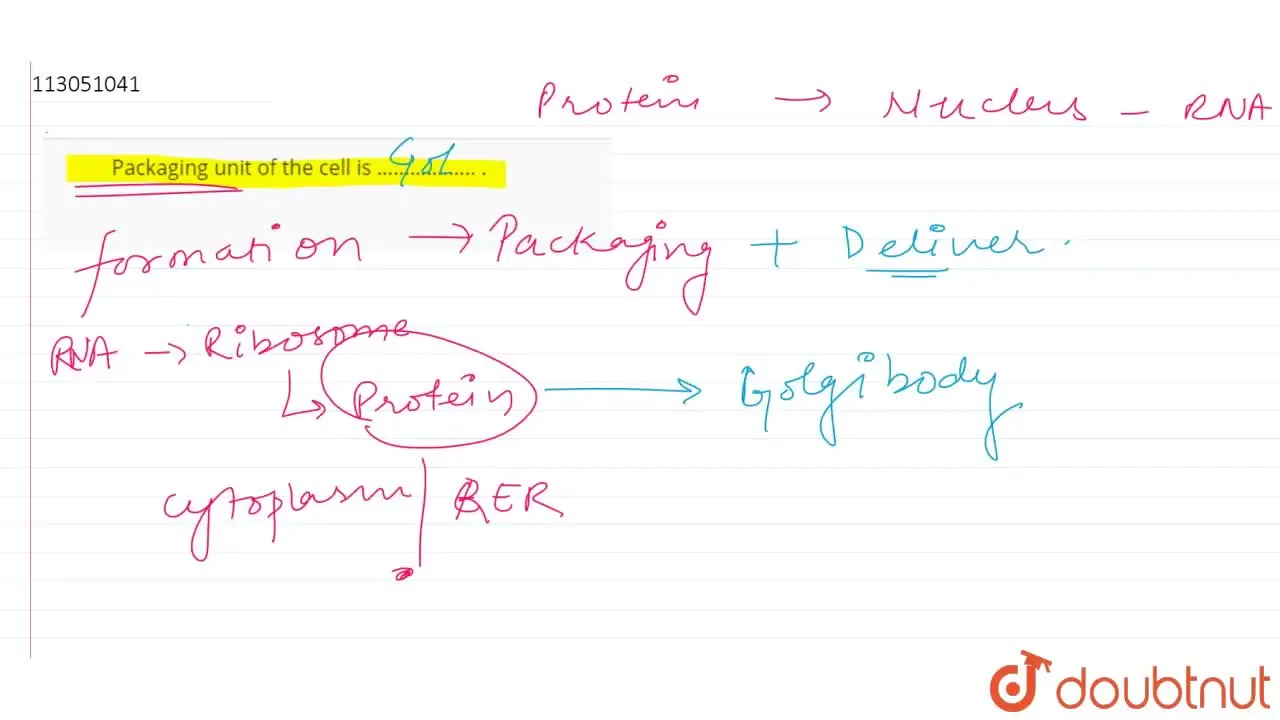 113051041
Protein → Nucleus - RNA
Packaging unit of the cell is Gol .
formation → Packaging + Deliver
RNA → Ribosome
Protein → Golgibody
cytoplasm | RER
doubtnut